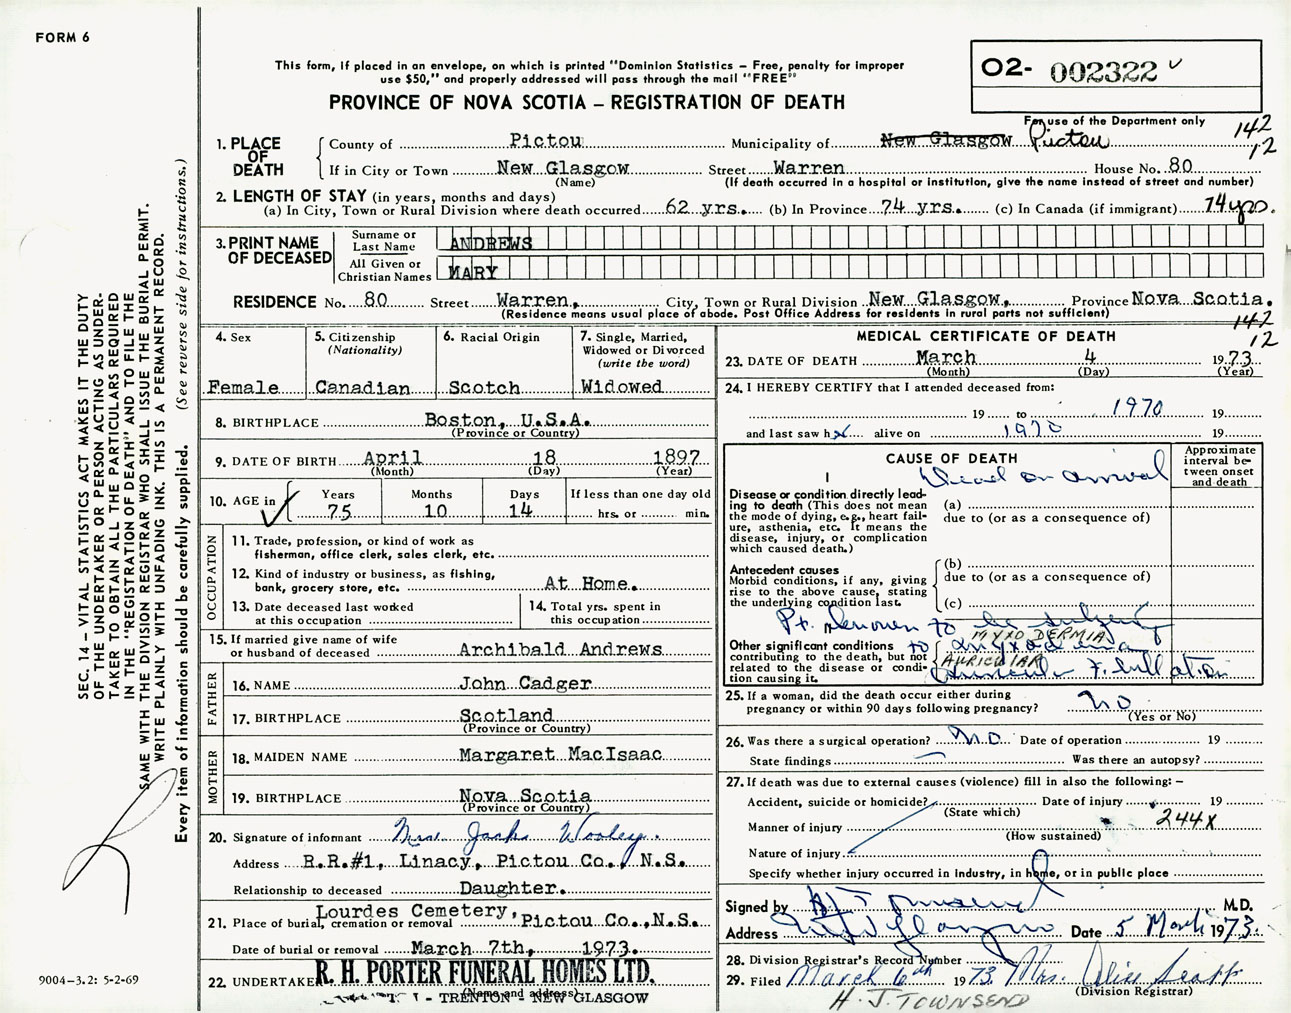 FORM 6
This form, if placed in an envelope, on which is printed "Dominion Statistics – Free, penalty for improper
use $50," and properly addressed will pass through the mail "FREE"
PROVINCE OF NOVA SCOTIA – REGISTRATION OF DEATH
O2- 002322
For use of the Department only
142
12
1. PLACE OF DEATH
County of Pictou Municipality of New Glasgow Pictou
If in City or Town New Glasgow Street Warren House No. 80
(Name) (If death occurred in a hospital or institution, give the name instead of street and number)
2. LENGTH OF STAY (in years, months and days)
(a) In City, Town or Rural Division where death occurred 62 yrs. (b) In Province 74 yrs. (c) In Canada (if immigrant) 74 yrs.
3. PRINT NAME OF DECEASED
Surname or Last Name ANDREWS
All Given or Christian Names MARY
RESIDENCE No. 80 Street Warren, City, Town or Rural Division New Glasgow, Province Nova Scotia.
(Residence means usual place of abode. Post Office Address for residents in rural parts not sufficient)
142
12
4. Sex Female
5. Citizenship (Nationality) Canadian
6. Racial Origin Scotch
7. Single, Married, Widowed or Divorced (write the word) Widowed
8. BIRTHPLACE Boston, U.S.A.
(Province or Country)
9. DATE OF BIRTH April 18 1897
(Month) (Day) (Year)
10. AGE in Years 75 Months 10 Days 14 If less than one day old hrs. or min.
OCCUPATION
11. Trade, profession, or kind of work as
fisherman, office clerk, sales clerk, etc.
12. Kind of industry or business, as fishing,
bank, grocery store, etc. At Home.
13. Date deceased last worked
at this occupation
14. Total yrs. spent in
this occupation
15. If married give name of wife
or husband of deceased Archibald Andrews
FATHER
16. NAME John Cadger
17. BIRTHPLACE Scotland
(Province or Country)
MOTHER
18. MAIDEN NAME Margaret MacIsaac
19. BIRTHPLACE Nova Scotia
(Province or Country)
20. Signature of informant Mrs. Jack Wooley.
Address R.R.#1, Linacy, Pictou Co., N.S.
Relationship to deceased Daughter.
21. Place of burial, cremation or removal Lourdes Cemetery, Pictou Co., N.S.
Date of burial or removal March 7th, 1973.
22. UNDERTAKER R. H. PORTER FUNERAL HOMES LTD.
(Name and address)
- TRENTON - NEW GLASGOW
MEDICAL CERTIFICATE OF DEATH
23. DATE OF DEATH March 4 1973
(Month) (Day) (Year)
24. I HEREBY CERTIFY that I attended deceased from:
19 to 1970 19
and last saw h alive on 1970 19
CAUSE OF DEATH
Approximate interval between onset and death
I
Dead on arrival
Disease or condition directly lead-
ing to death (This does not mean
the mode of dying, e.g., heart fail-
ure, asthenia, etc. It means the
disease, injury, or complication
which caused death.)
(a)
due to (or as a consequence of)
Antecedent causes
Morbid conditions, if any, giving
rise to the above cause, stating
the underlying condition last.
(b)
due to (or as a consequence of)
(c)
Pt. known to be subject
to myxodemia
MYXO DERMIA
Other significant conditions
contributing to the death, but not
related to the disease or condi-
tion causing it.
AURICULAR
Auricular Fibrillation
25. If a woman, did the death occur either during
pregnancy or within 90 days following pregnancy? No
(Yes or No)
26. Was there a surgical operation? No Date of operation 19
State findings Was there an autopsy?
27. If death was due to external causes (violence) fill in also the following: –
Accident, suicide or homicide? Date of injury 19
(State which)
244X
Manner of injury
(How sustained)
Nature of injury
Specify whether injury occurred in industry, in home, or in public place
Signed by H J Townsend M.D.
Address New Glasgow Date 5 March 1973.
28. Division Registrar's Record Number
29. Filed March 6th 1973 Mrs. Alice
(Division Registrar)
H. J. TOWNSEND
SEC. 14 – VITAL STATISTICS ACT MAKES IT THE DUTY
OF THE UNDERTAKER OR PERSON ACTING AS UNDER-
TAKER TO OBTAIN ALL THE PARTICULARS REQUIRED
IN THE "REGISTRATION OF DEATH" AND TO FILE THE
SAME WITH THE DIVISION REGISTRAR WHO SHALL ISSUE THE BURIAL PERMIT.
WRITE PLAINLY WITH UNFADING INK. THIS IS A PERMANENT RECORD.
Every item of information should be carefully supplied. (See reverse side for instructions.)
9004-3.2: 5-2-69